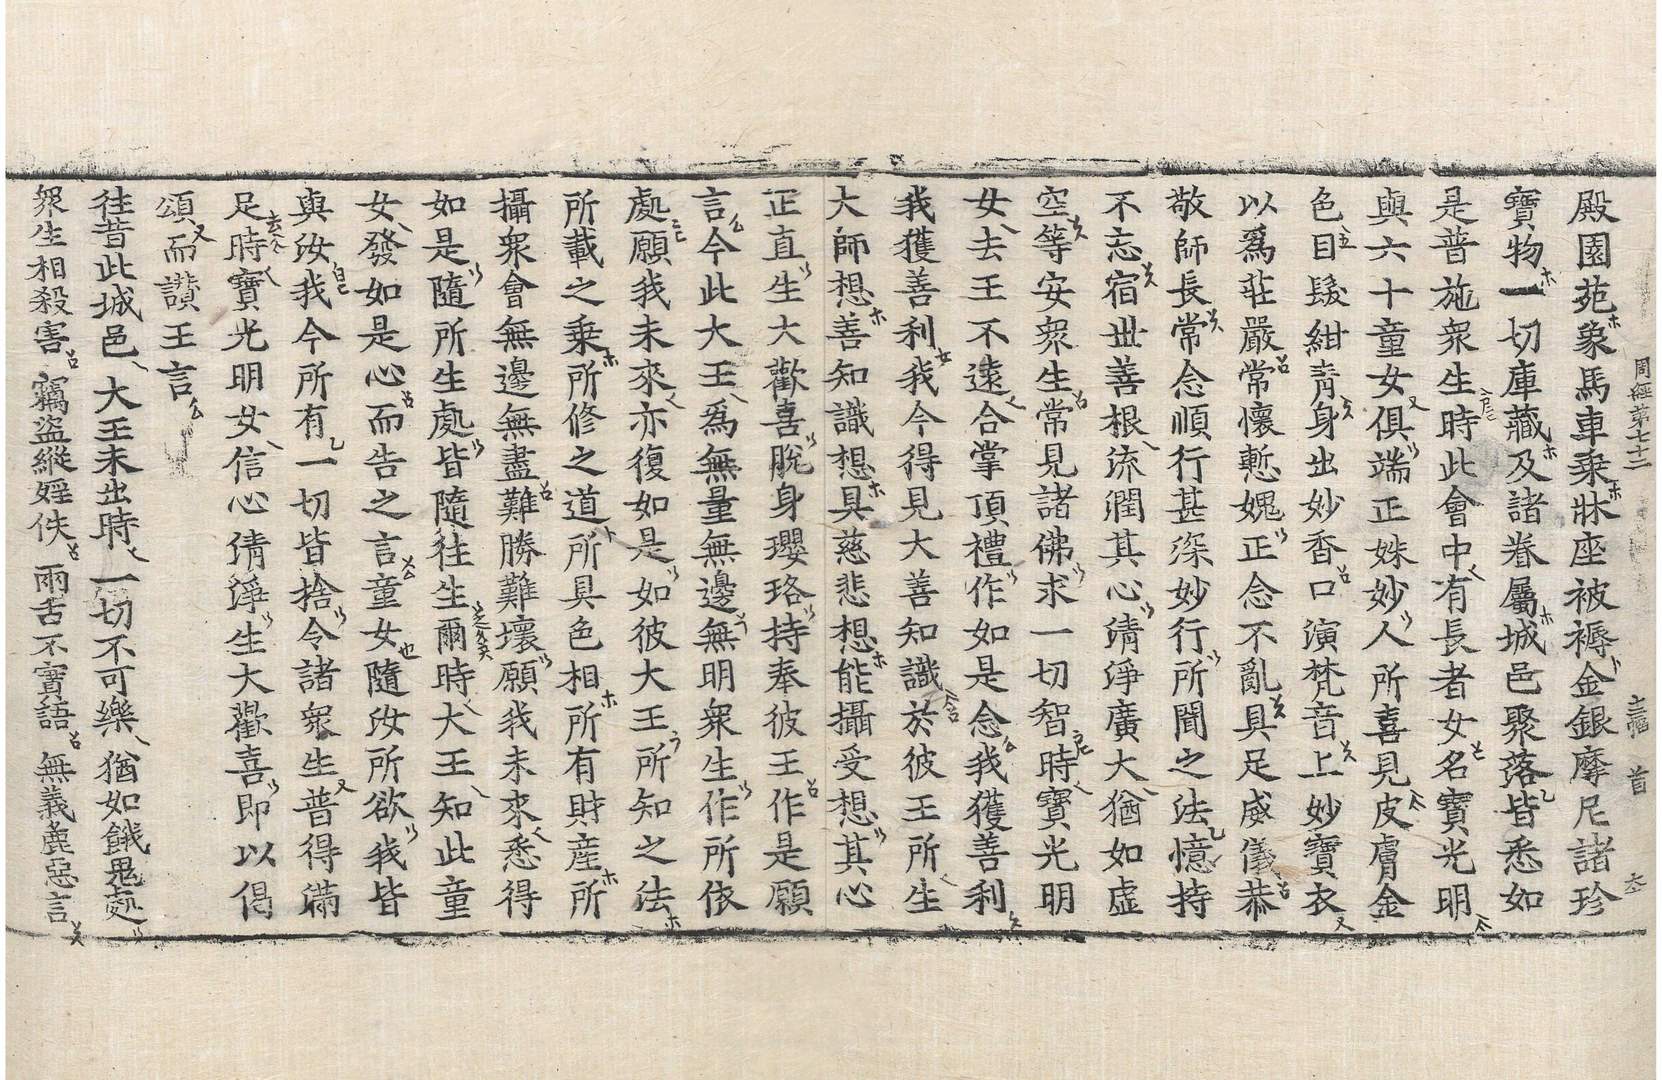 周經第七十二 十二幅 首
殿園苑象馬車乗牀座被褥金銀摩尼諸珍
寶物一切庫藏及諸眷屬城邑聚落皆悉如
是普施衆生時此會中有長者女名寶光明
與六十童女俱端正姝妙人所喜見皮膚金
色目髮紺青身出妙香口演梵音上妙寶衣
以爲莊嚴常懷慙媿正念不亂具足威儀恭
敬師長常念順行甚深妙行所聞之法憶持
不忘宿世善根流潤其心清淨廣大猶如虛
空等安衆生常見諸佛求一切智時寶光明
女去王不遠合掌頂禮作如是念我獲善利
我獲善利我今得見大善知識於彼王所生
大師想善知識想具慈悲想能攝受想其心
正直生大歡喜脫身瓔珞持奉彼王作是願
言今此大王爲無量無邊無明衆生作所依
處願我未來亦復如是如彼大王所知之法
所載之乗所修之道所具色相所有財産所
攝衆會無邊無盡難勝難壞願我未來悉得
如是隨所生處皆隨往生爾時大王知此童
女發如是心而告之言童女隨汝所欲我皆
與汝我今所有一切皆捨令諸衆生普得滿
足時寶光明女信心清淨生大歡喜即以偈
頌而讃王言
往昔此城邑 大王未出時 一切不可樂 猶如餓鬼處
衆生相殺害 竊盜縱婬佚 兩舌不實語 無義麁惡言